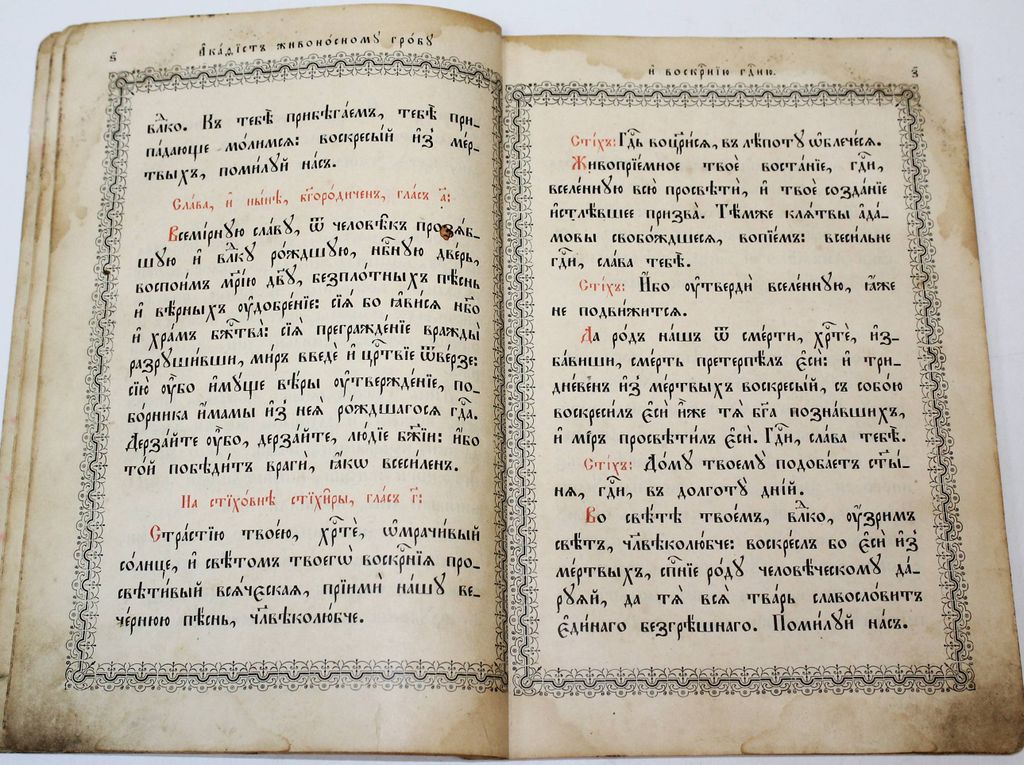 ѕ҃
А҆ка́ѳїстъ живоно́сномꙋ гро́бꙋ
влⷣко. Къ тебѣ̀ прибѣга́емъ, тебѣ̀ при-
па́дающе мо́лимсѧ: воскресы́й и҆з̾ ме́р-
твыхъ, поми́лꙋй на́съ.
Сла́ва, и҆ ны́нѣ, бг҃оро́диченъ, гла́съ а҃:
Всемі́рнꙋю сла́вꙋ, ѿ человѣ̑къ прозѧ́б-
шꙋю и҆ влⷣкꙋ ро́ждшꙋю, нбⷭ҇нꙋю две́рь,
воспои́мъ мр҃і́ю дв҃ꙋ, безпло́тныхъ пѣ́снь
и҆ вѣ́рныхъ ᲂу҆добре́нїе: сїѧ́ бо ꙗ҆ви́сѧ нб҃о
и҆ хра́мъ бж҃тва̀: сїѧ̀ прегражде́нїе вражды̀
разрꙋши́вши, ми́ръ введѐ и҆ црⷭ҇твїе ѿве́рзе:
сїю̀ ᲂу҆̀бо и҆мꙋ́ще вѣ́ры ᲂу҆твержде́нїе, по-
бо́рника и҆́мамы и҆з̾ неѧ̀ ро́ждшагосѧ гдⷭ҇а.
Дерза́йте ᲂу҆̀бо, дерза́йте, лю́дїе бж҃їи: и҆́бо
то́й побѣди́тъ врагѝ, ꙗ҆́кѡ всеси́ленъ.
На стїхо́внѣ стїхи̑ры, гла́съ г҃:
Стра́стїю твое́ю, хрⷭ҇тѐ, ѡ҆мрачи́вый
со́лнце, и҆ свѣ́томъ твоегѡ̀ воскрⷭ҇нїѧ про-
свѣти́вый всѧ́чєскаѧ, прїимѝ на́шꙋ ве-
че́рнюю пѣ́снь, чл҃вѣколю́бче.
и҆ воскрⷭ҇нїю гдⷭ҇ню.
з҃
Сті́хъ: Гдⷭ҇ь воцр҃и́сѧ, въ лѣ́потꙋ ѡ҆блече́сѧ.
Живопрїе́мное твоѐ воста́нїе, гдⷭ҇и,
вселе́ннꙋю всю̀ просвѣтѝ, и҆ твоѐ созда́нїе
и҆стлѣ́вшее призва̀. Тѣ́мже клѧ́твы а҆да́-
мовы свобо́ждшесѧ, вопїе́мъ: всеси́льне
гдⷭ҇и, сла́ва тебѣ̀.
Сті́хъ: И҆́бо ᲂу҆твердѝ вселе́ннꙋю, ꙗ҆́же
не подви́житсѧ.
Да ро́дъ на́шъ ѿ сме́рти, хрⷭ҇тѐ, и҆з-
ба́виши, сме́рть претерпѣ́лъ є҆сѝ: и҆ три-
дне́венъ и҆з̾ ме́ртвыхъ воскресы́й, съ собо́ю
воскреси́лъ є҆сѝ и҆̀же тѧ̀ бг҃а позна́вшихъ,
и҆ мі́ръ просвѣти́лъ є҆сѝ. Гдⷭ҇и, сла́ва тебѣ̀.
Сті́хъ: До́мꙋ твоемꙋ̀ подоба́етъ ст҃ы́-
нѧ, гдⷭ҇и, въ долготꙋ̀ дні́й.
Во свѣ́тѣ твое́мъ, влⷣко, ᲂу҆́зримъ
свѣ́тъ, чл҃вѣколю́бче: воскре́слъ бо є҆сѝ и҆з̾
ме́ртвыхъ, спⷭ҇нїе ро́дꙋ человѣ́ческомꙋ да́-
рꙋѧй, да тѧ̀ всѧ̀ тва́рь славосло́витъ
є҆ди́наго безгрѣ́шнаго. Поми́лꙋй на́съ.